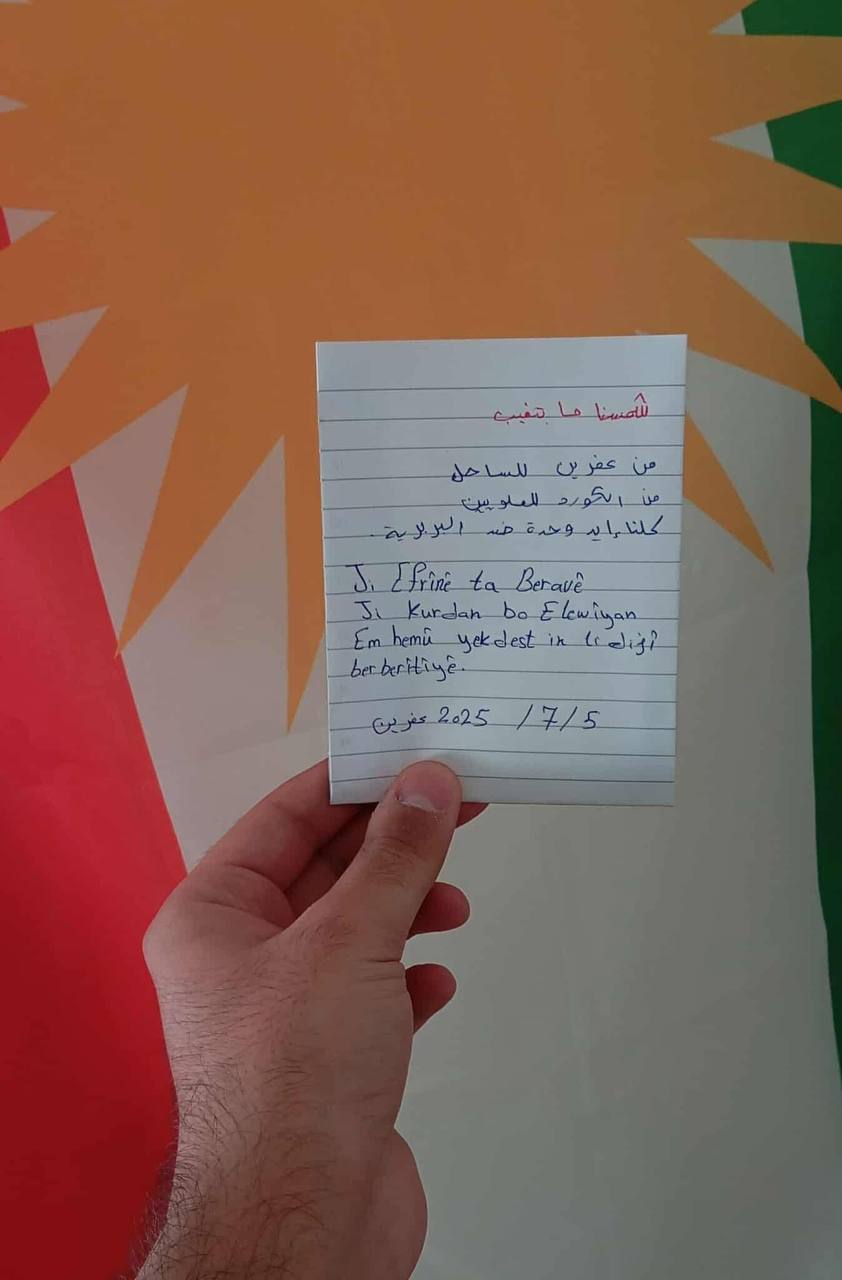 شمسنا ما بتغيب
من عفرين للساحل
من الكورد للعلويين
كلنا إيد وحدة ضد البربرية.
Ji Efrînê ta Beravê
Ji Kurdan bo Elewîyan
Em hemû yekdest in li dijî
berberîtîyê.
عفرين 2025 /7/5